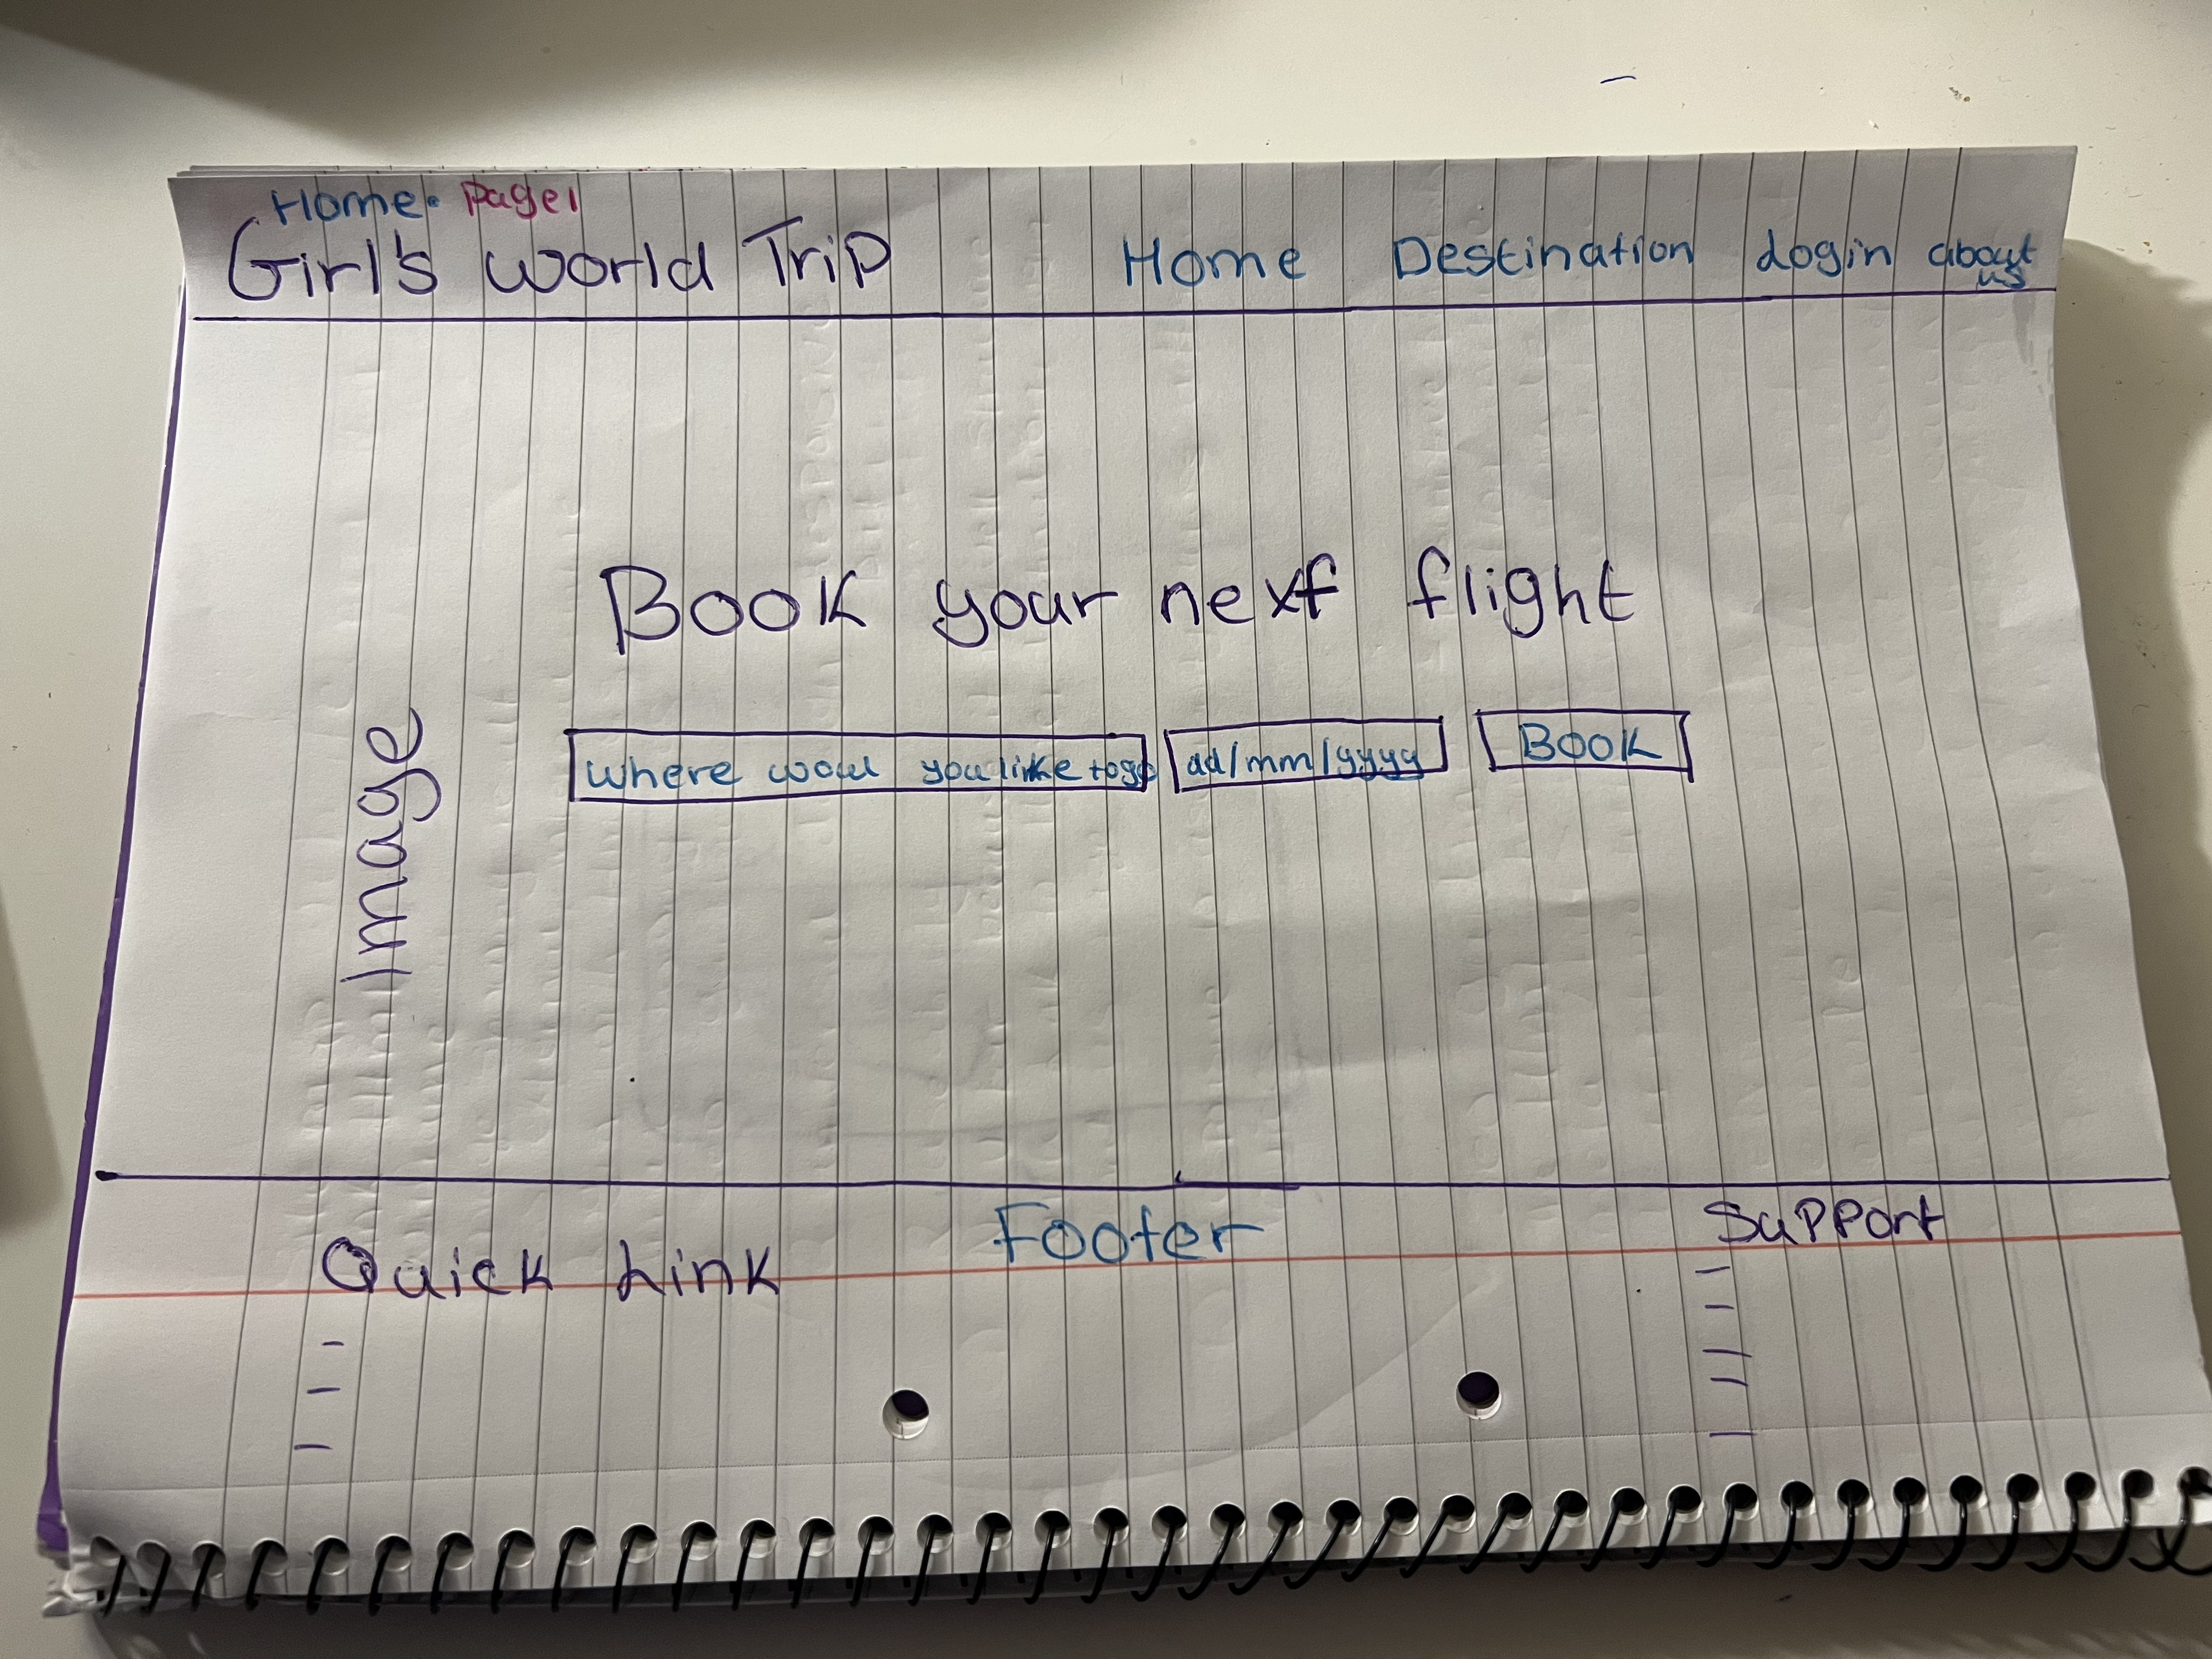 Home. Page 1
Girl's World Trip Home Destination Login about us
Book your next flight
Where woul you like to go dd/mm/yyyy Book
Image
Footer Support
Quick Link